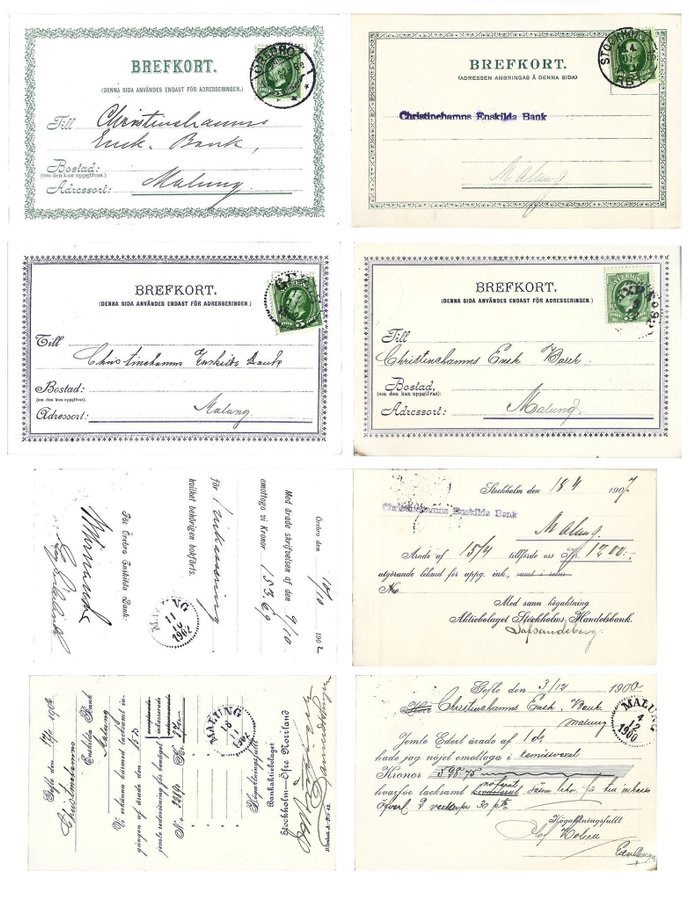 BREFKORT.
(DENNA SIDA ANVÄNDES ENDAST FÖR ADRESSERINGEN.)
Till Christinehamns
Ensk. Bank,
Bostad:
(om den kan uppgifvas)
Malung.
Adressort:
ÖREBRO
BREFKORT.
(ADRESSEN ANBRINGAS Å DENNA SIDA)
Christinehamns Enskilda Bank
Malung
STOCKHOLM
BREFKORT.
(DENNA SIDA ANVÄNDES ENDAST FÖR ADRESSERINGEN.)
Till
Christinehamns Enskilda Bank
Bostad:
(om den kan uppgifvas)
Adressort: Malung.
BREFKORT.
(DENNA SIDA ANVÄNDES ENDAST FÖR ADRESSERINGEN.)
Till
Christinehamns Ensk Bank.
Bostad,
(om den kan uppgifvas):
Adressort: Malung.
Örebro den 10/10 1902
Med ärade skrifvelsen af den 9/10
emottogo vi Kronor 153.69
för Inkassering
hvilket behörigen bokförts.
För Örebro Enskilda Bank:
MALUNG
11
10
1902
Stockholm den 18 4 1907
Christinehamns Enskilda Bank
Malung.
Ärade af 15/4 tillförde oss Kr. 1200:-
utgörande likvid för uppg. ink.,
No.
Med sann högaktning
Aktiebolaget Stockholms Handelsbank.
Gefle den 17/1 1902
Christinehamns
Enskilda Bank
Malung
Vi erkänna härmed tacksamt in-
gången af ärade den
jemte redovisning för
No.
Kr.
Högaktningsfullt
Bankaktiebolaget
Stockholm—Öfre Norrland
MALUNG
18
1
1902
Gefle den 3/12 1900
Christinehamns Ensk. Bank
Malung
Jemte Edert ärade af 1 ds
hade jag nöjet emottaga i
Kronor 598.75
hvarför tacksamt
Högaktningsfullt
MALUNG
4
12
1900